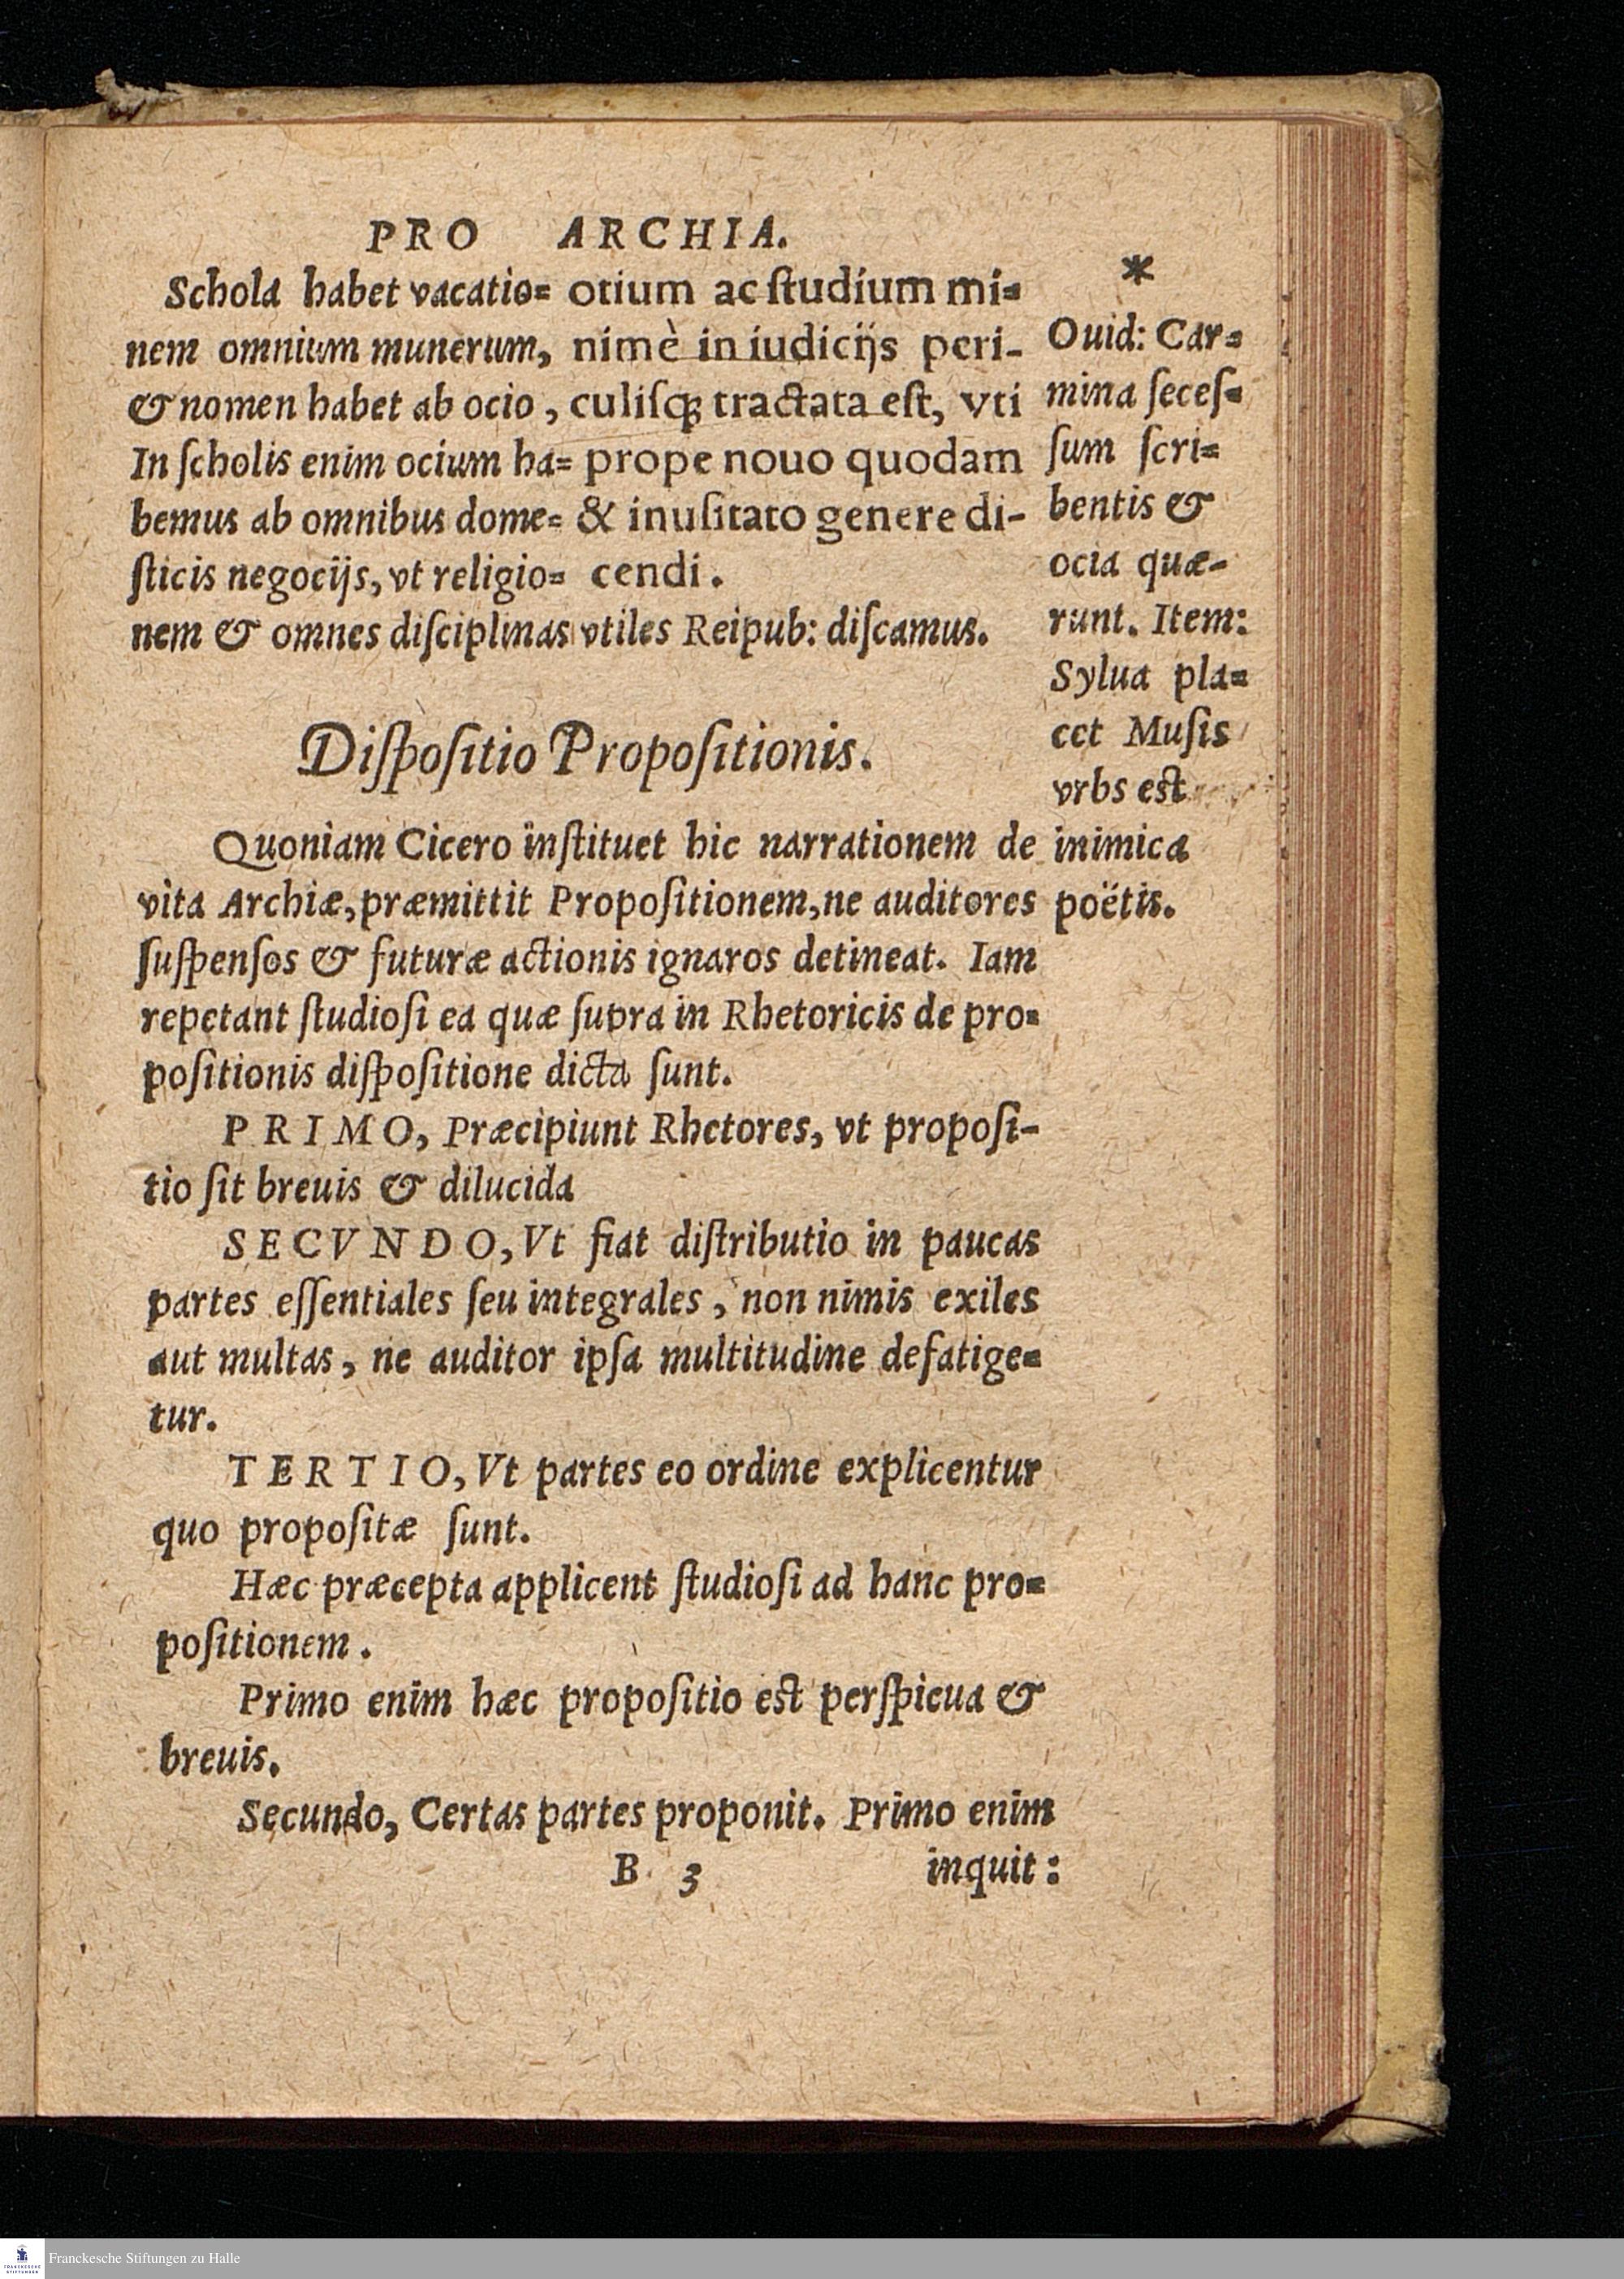 PRO ARCHIA.
Schola habet vacatio=
nem omnium munerum,
& nomen habet ab ocio,
In ſcholis enim ocium ha=
bemus ab omnibus dome=
ſticis negocijs, vt religio=
nem & omnes diſciplinas vtiles Reipub: diſcamus.
otium ac ſtudium mi=
nimè in iudicijs peri-
culiſq́; tractata eſt, vti
prope nouo quodam
& inuſitato genere di-
cendi.
*
Ouid: Car=
mina ſeceſ=
ſum ſcri=
bentis &
ocia quæ-
runt. Item:
Sylua pla=
cet Muſis
vrbs eſt
inimica
poëtis.
Diſpoſitio Propoſitionis.
Quoniam Cicero inſtituet hic narrationem de
vita Archiæ, præmittit Propoſitionem, ne auditores
ſuſpenſos & futuræ actionis ignaros detineat. Iam
repetant ſtudioſi ea quæ ſupra in Rhetoricis de pro=
poſitionis diſpoſitione dicta ſunt.
PRIMO, Præcipiunt Rhetores, vt propoſi-
tio ſit breuis & dilucida
SECVNDO, Vt fiat diſtributio in paucas
partes eſſentiales ſeu integrales, non nimis exiles
aut multas, ne auditor ipſa multitudine defatige=
tur.
TERTIO, Vt partes eo ordine explicentur
quo propoſitæ ſunt.
Hæc præcepta applicent ſtudioſi ad hanc pro=
poſitionem.
Primo enim hæc propoſitio eſt perſpicua &
breuis.
Secundo, Certas partes proponit. Primo enim
B 3 inquit:
Franckesche Stiftungen zu Halle
FRANCKESCHE
STIFTUNGEN